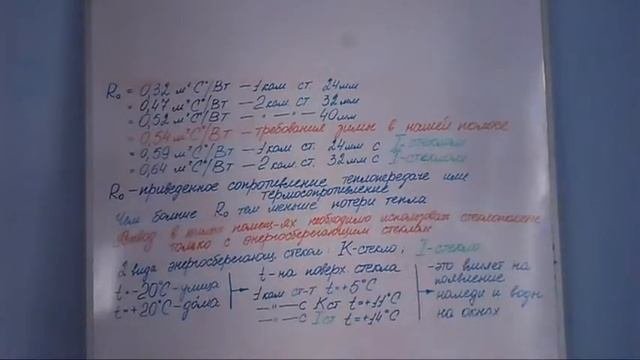 R₀ = 0,32 м²С°/Вт — 1 кам ст. 24мм
= 0,47 м²С°/Вт — 2 кам. ст 32мм
= 0,52 м²С°/Вт — " — " — 40мм
= 0,54 м²С°/Вт — требования зимы в нашей полосе
= 0,59 м²С°/Вт — 1 кам. ст. 24мм с I-стеклом
= 0,64 м²С°/Вт — 2 кам. ст. 32мм с I-стеклом
R₀ - приведенное сопротивление теплопередаче или
термосопротивление
Чем больше R₀ тем меньше потери тепла
Вывод в жилых помещ-ях необходимо использовать стеклопакеты
только с энергосберегающим стеклом
2 вида энергосберегающ. стекол: К-стекло, I-стекло
t = -20°С - улица
t = +20°С - дома
t - на поверх стекла
1 кам ст-т t = +5°С
— " — с К ст t = +11°С
— " — с I ст t = +14°С
- это влияет на
появление
наледи и воды
на окнах